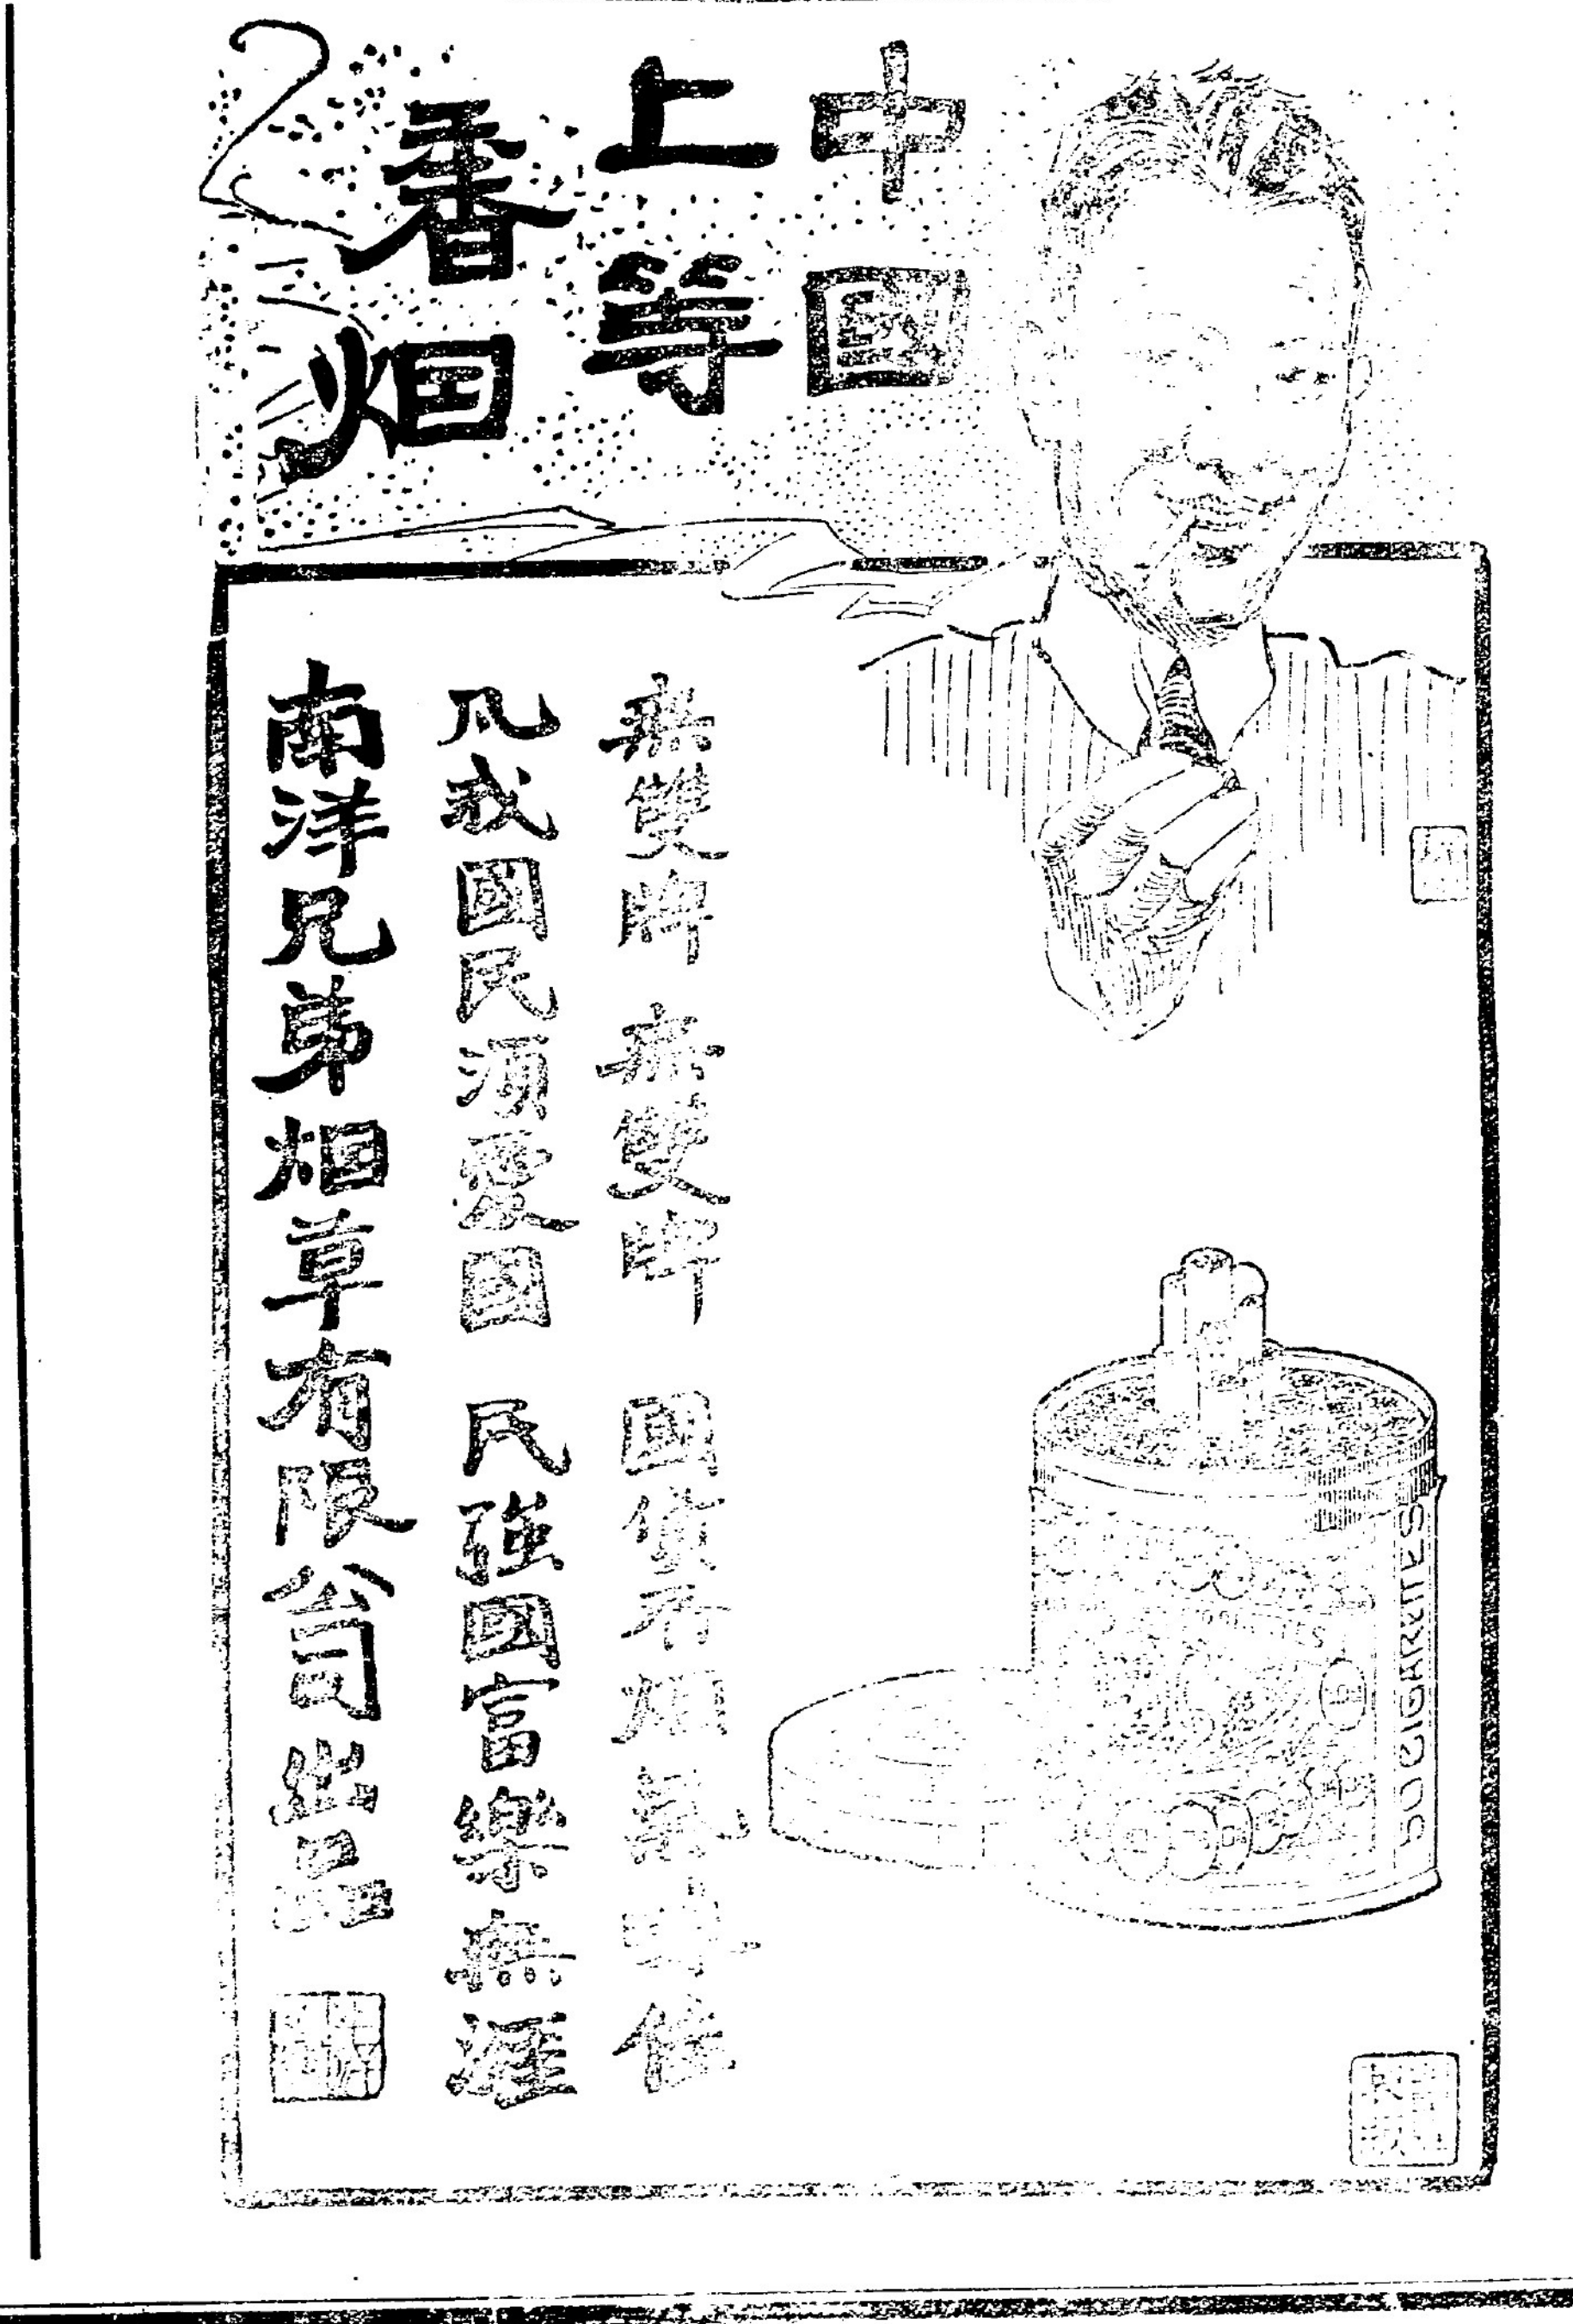 中國
上等
香烟
無雙牌 無雙牌 國貨香烟氣味佳
凡我國民須愛國 民強國富樂無涯
南洋兄弟烟草有限公司出品
50 CIGARETTES